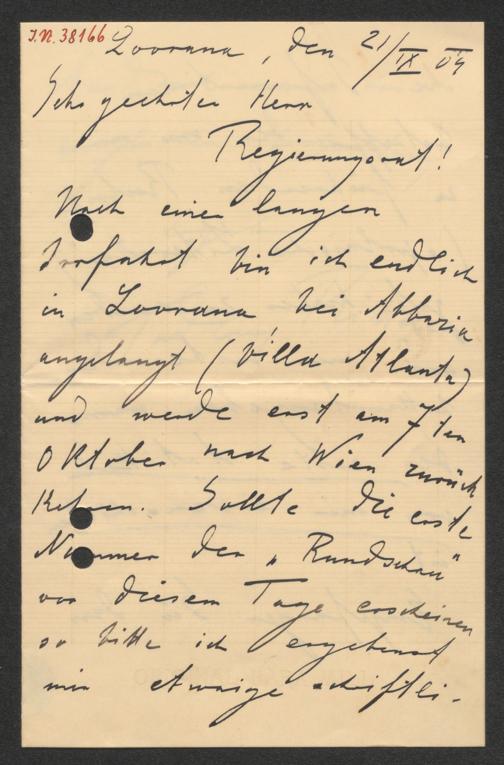 J.N. 38166
Lovrana, den 21/IX 09
Sehr geehrter Herr
Regierungsrat!
Nach einer langen
Irrfahrt bin ich endlich
in Lovrana bei Abbazia
angelangt (Villa Atlanta)
und werde erst am 7ten
Oktober nach Wien zurück
kehren. Sollte die erste
Nummer der „Rundschau"
vor diesem Tage erscheinen
so bitte ich ergebenst
mir etwaige schriftli-